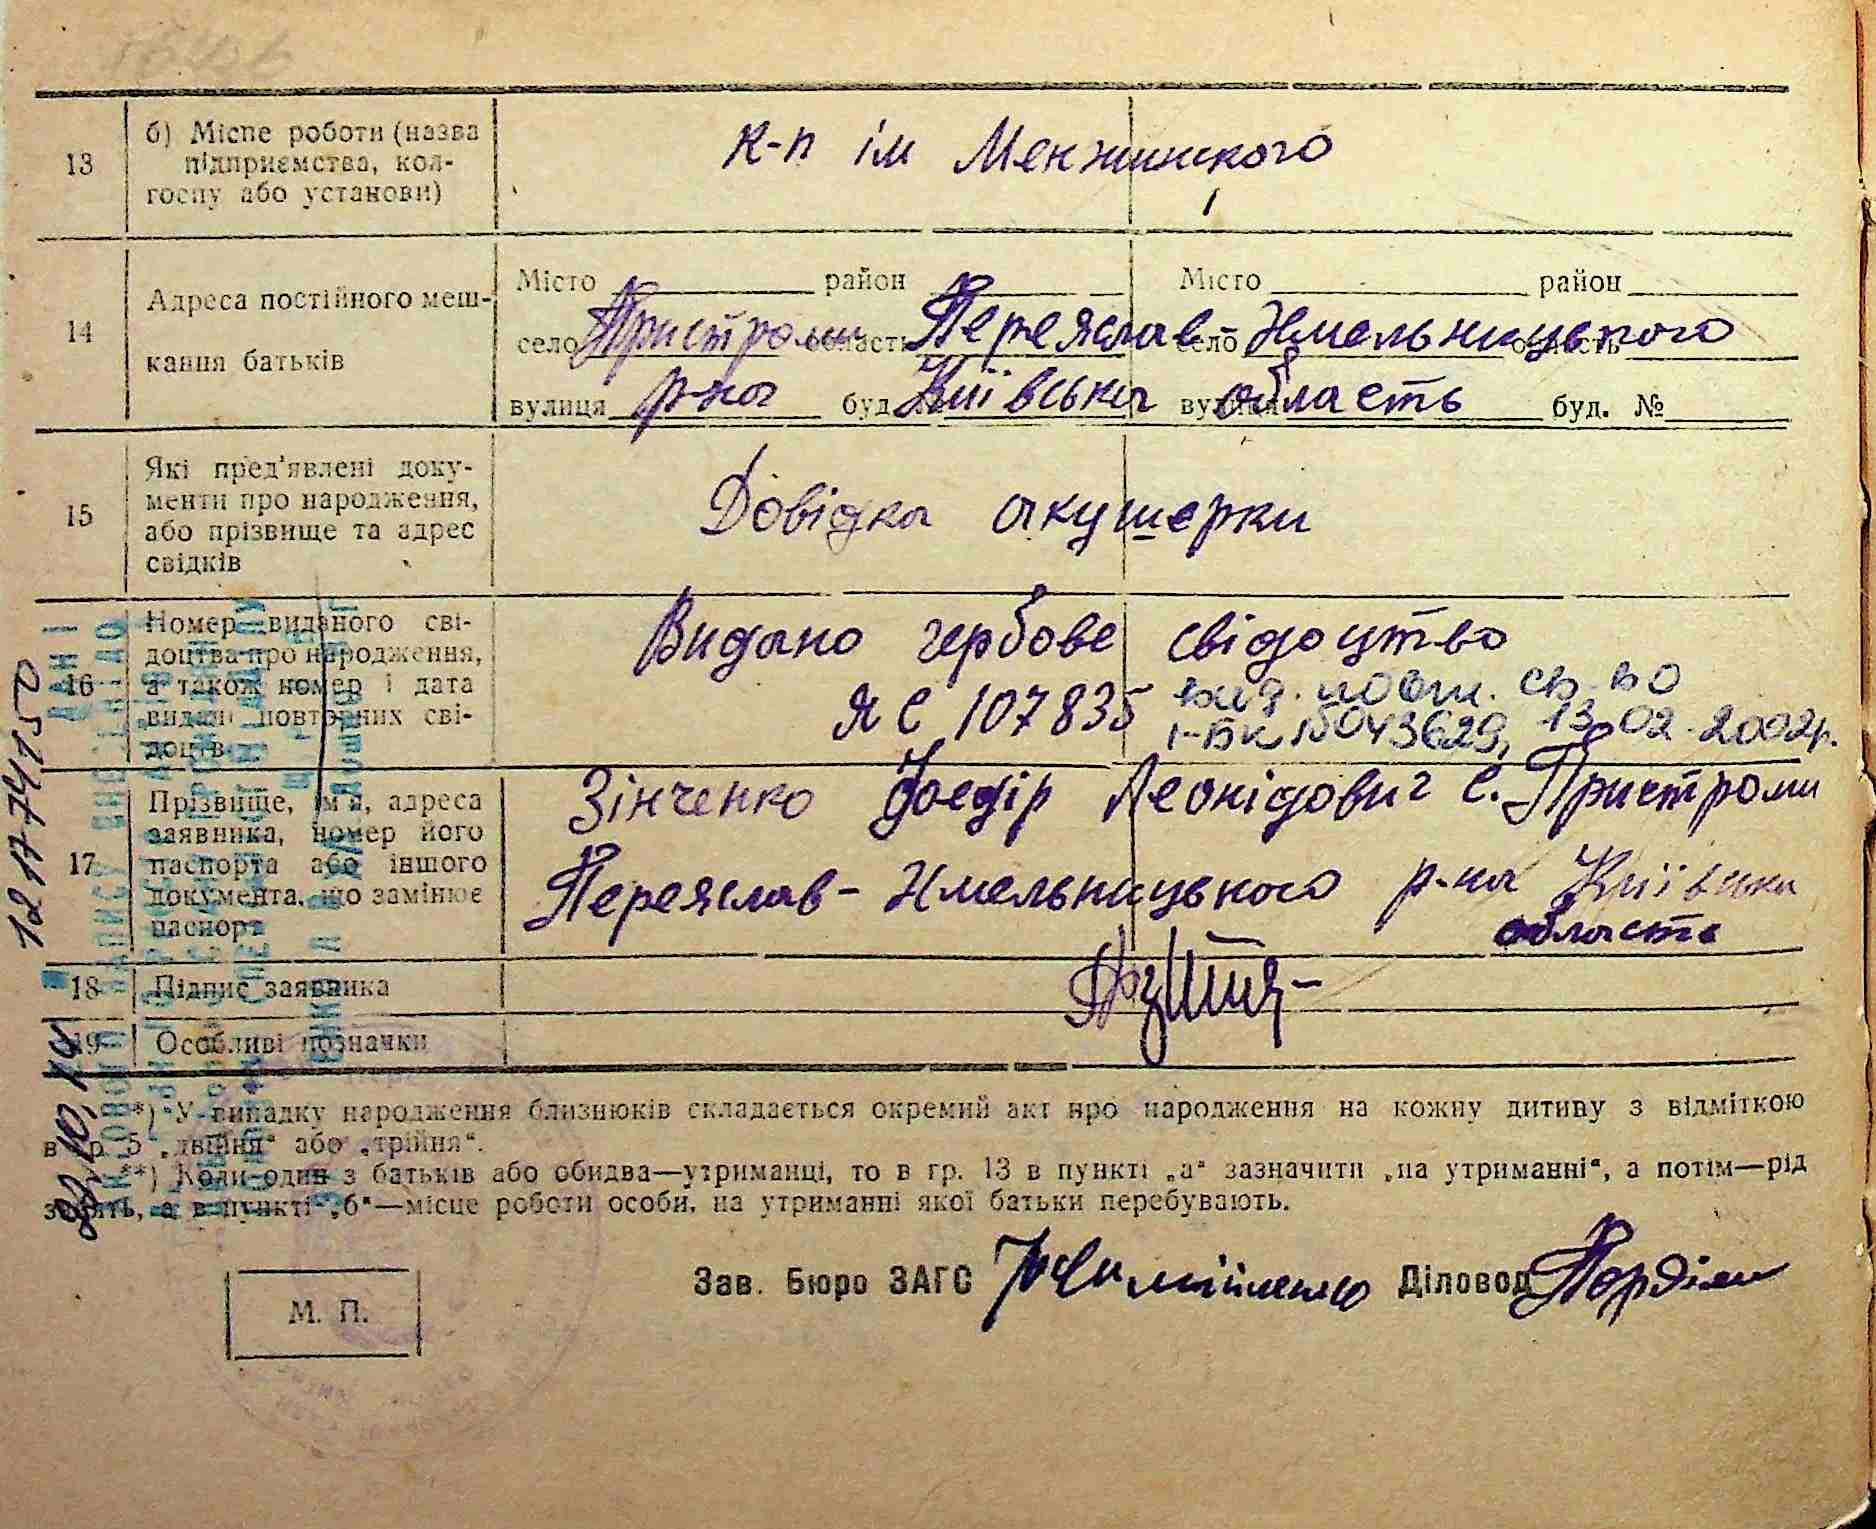 13
б) Місце роботи (назва
підприємства, кол-
госпу або установи)
к-п ім Менжинского
14
Адреса постійного меш-
кання батьків
Місто район Місто район
село Пристроми область Переяслав село Хмельницького область
вулиця р-на буд. Київська вулиця область буд. №
15
Які пред'явлені доку-
менти про народження,
або прізвище та адрес
свідків
Довідка акушерки
16
Номер виданого сві-
доцтва про народження,
а також номер і дата
видачі повторних сві-
доцтв
Видано гербове свідоцтво
ЯС 107835 вид. повт. св-во
І-БК №043629, 13.02.2002р.
17
Прізвище, ім'я, адреса
заявника, номер його
паспорта або іншого
документа, що замінює
паспорт
Зінченко Фоедір Леонідович с. Пристроми
Переяслав-Хмельницького р-на Київська
область
18
Підпис заявника
19
Особливі позначки
*) У випадку народження близнюків складається окремий акт про народження на кожну дитину з відміткою
в гр. 5 „двійня“ або „трійня“.
**) Коли один з батьків або обидва—утриманці, то в гр. 13 в пункті „а“ зазначити „на утриманні“, а потім—рід
занять, а в пункті „б“—місце роботи особи, на утриманні якої батьки перебувають.
Зав. Бюро ЗАГС Діловод
М. П.
121774150